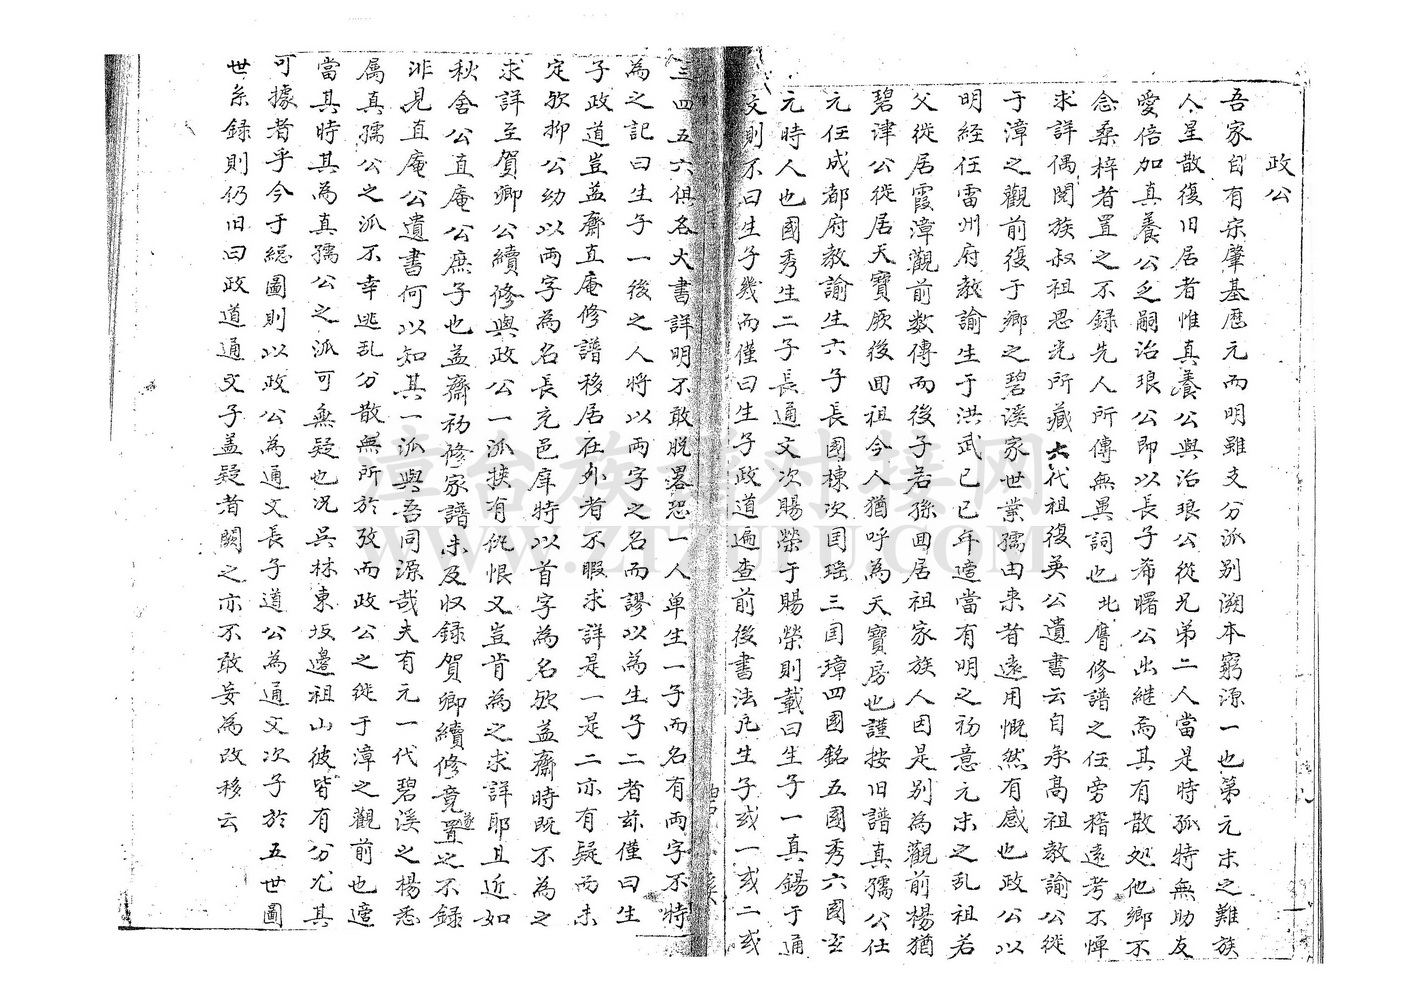 政公
吾家自有宗肇基歷元而明雖支分派別溯本窮源一也第元末之難族
人星散復旧居者惟真養公與治琅公從兄弟二人當是時孤特無助友
愛倍加真養公乏嗣治琅公即以長子希曙公出継焉其有散処他鄉不
念桑梓者置之不録先人所傳無異詞也北膺修譜之任旁稽遠考不憚
求詳偶閱族叔祖思光所藏六代祖復英公遺書云自承高祖教諭公徙
于漳之觀前復于鄉之碧溪家世業孺由来者遠用慨然有感也政公以
明經任雷州府教諭生于洪武己巳年遡當有明之初意元末之乱祖若
父徙居霞漳觀前数傳而後子若孫回居祖家族人因是別為觀前楊猶
碧津公徙居天寶厥後回祖今人猶呼為天寶房也謹按旧譜真孺公仕
元任成都府教諭生六子長國棟次囯瑶三囯璋四國銘五國秀六國
元時人也國秀生二子長通文次賜榮于賜榮則載曰生子一真錫于通
文則不曰生子幾而僅曰生子政道遍查前後書法凡生子或一或二或
三四五六俱名大書詳明不敢脱畧恐一人单生一子而名有両字不特
為之記曰生子一後之人将以両字之名而謬以為生子二者茲僅曰生
子政道豈益齋直庵修譜移居在外者不暇求詳是一是二亦有疑而未
定欤抑公幼以両字為名長充邑庠特以首字為名欤益齋時既不為之
求詳至賀卿公續修與政公一派挟有仇恨又豈肯為之求詳耶且近如
秋舍公直庵公庶子也益齋初修家譜未及収録賀卿續修竟遂置之不録
非見直庵公遺書何以知其一派與吾同源哉夫有元一代碧溪之楊悉
属真孺公之派不幸逃乱分散無所於攷而政公之徙于漳之觀前也遡
當其時其為真孺公之派可無疑也况吳林東坂邊祖山彼皆有分尤其
可據者乎今于総圖則以政公為通文長子道公為通文次子於五世圖
世系録則仍旧曰政道通文子盖疑者闕之亦不敢妄為改移云
漳台族譜对接网
WWW.ZTZUPU.COM